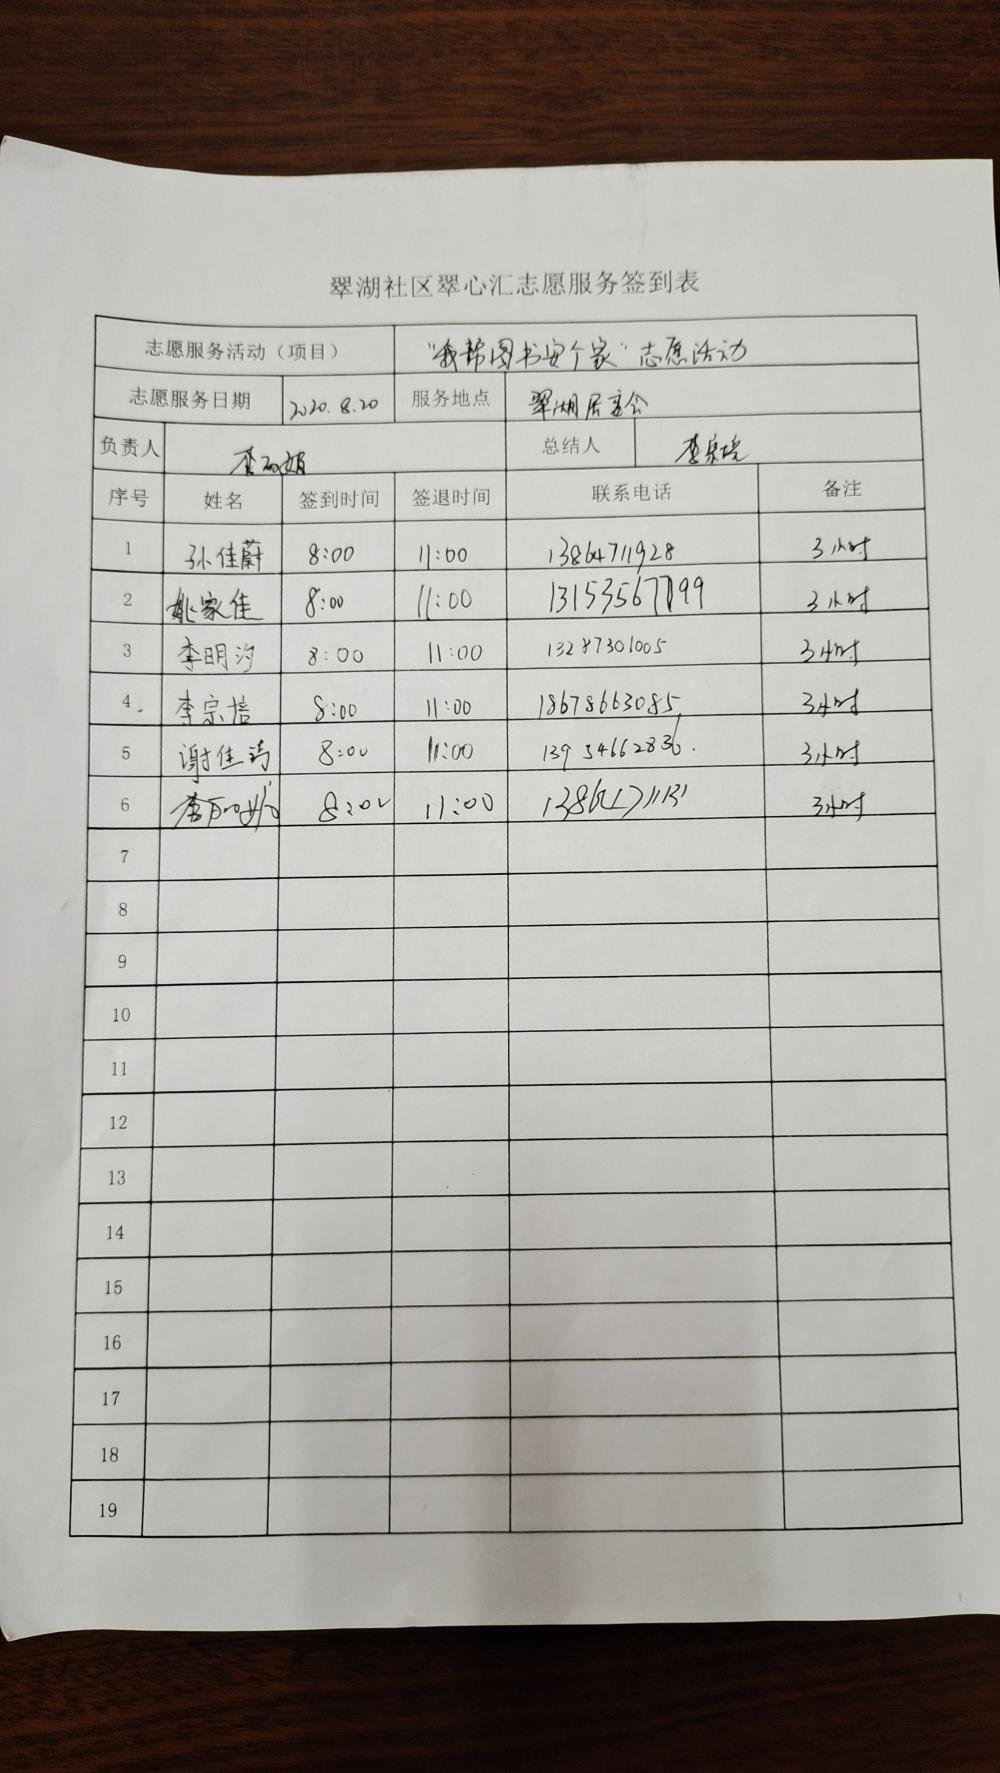 翠湖社区翠心汇志愿服务签到表
志愿服务活动（项目） “我帮图书安个家”志愿活动
志愿服务日期 2020.8.20 服务地点 翠湖居委会
负责人 总结人 李宗培
序号 姓名 签到时间 签退时间 联系电话 备注
1 孙佳蔚 8:00 11:00 13864711928 3小时
2 姚家佳 8:00 11:00 3小时
3 李明汐 8:00 11:00 13287301005 3小时
4 李宗培 8:00 11:00 18678663085 3小时
5 谢佳 8:00 11:00 13954662836 3小时
6 8:00 11:00 3小时
7
8
9
10
11
12
13
14
15
16
17
18
19